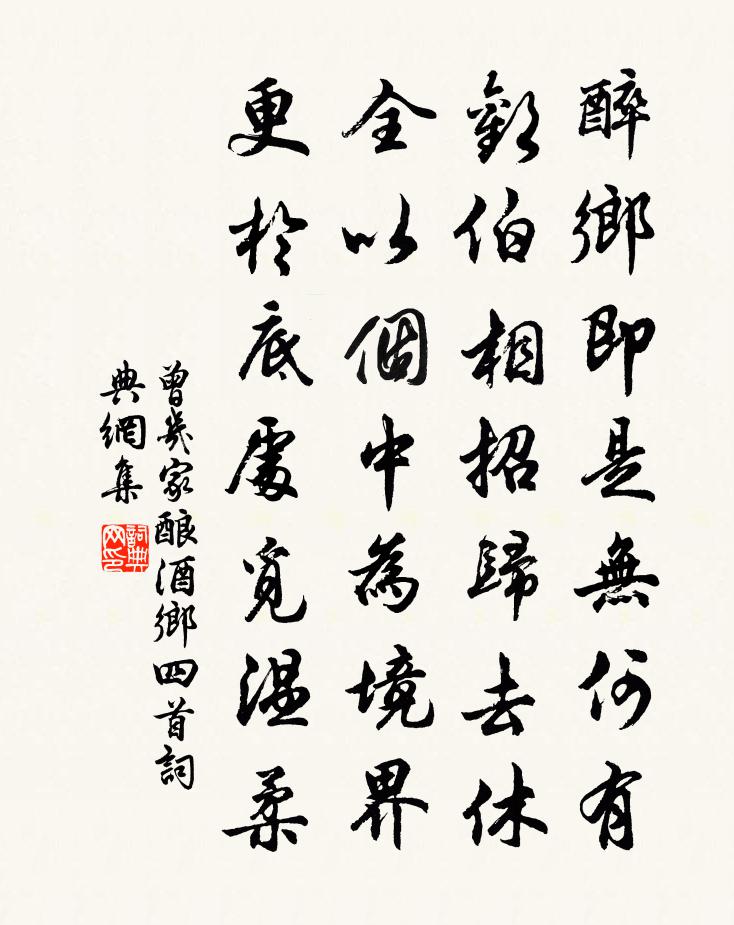 醉鄉即是無何有
歡伯相招歸去休
全以個中為境界
更於底處覓温柔
曾幾家酿酒鄉四首詞
典網集
詞典
网印